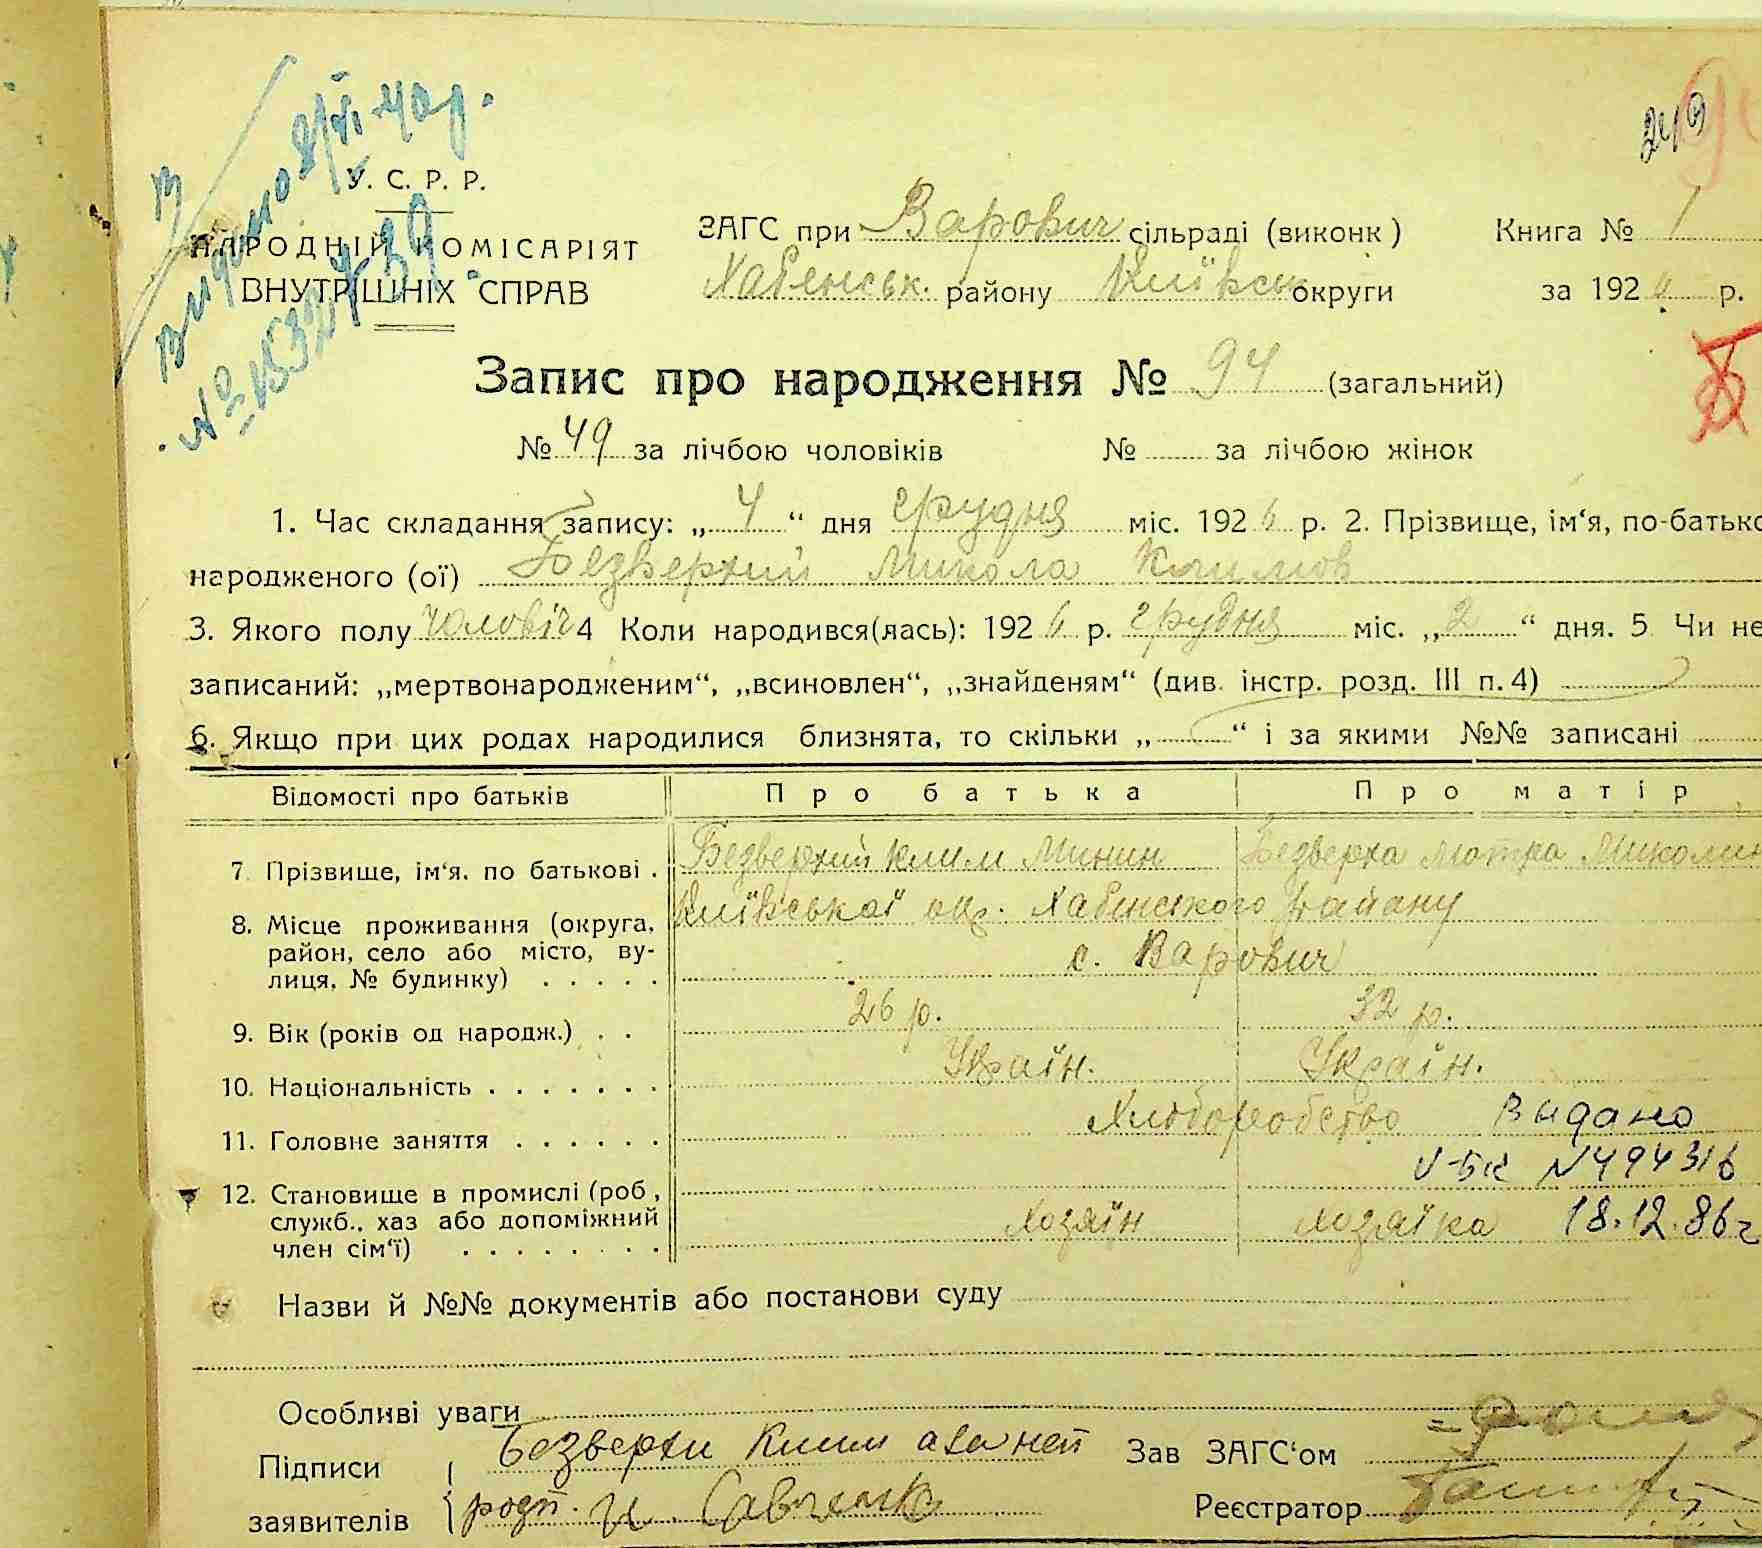 Видано 8/VI 40 р.
№ 153
249
У. С. Р. Р.
НАРОДНІЙ КОМІСАРІЯТ
ВНУТРІШНІХ СПРАВ
ЗАГС при Варович сільраді (виконк) Книга № 1
Хабенськ. району Київськ округи за 1926 р.
Запис про народження № 94 (загальний)
№ 49 за лічбою чоловіків № за лічбою жінок
1. Час складання запису: „4“ дня грудня міс. 1926 р. 2. Прізвище, ім‘я, по-батько
народженого (ої) Безверхий Микола Климов
3. Якого полу чоловіч 4 Коли народився(лась): 1926 р. грудня міс. „2“ дня. 5 Чи не
записаний: „мертвонародженим“, „всиновлен“, „знайденям“ (див. інстр. розд. III п. 4)
6. Якщо при цих родах народилися близнята, то скільки „ “ і за якими №№ записані
Відомості про батьків Про батька Про матір
7 Прізвище, ім‘я. по батькові . Безверхий Клим Минин Безверха Мотра Миколин
8. Місце проживання (округа, Київської окр. Хабенського Району
район, село або місто, ву-
лиця, № будинку) . . . . . с. Варович
9. Вік (років од народж.) . . 26 р. 32 р.
10. Національність . . . . . . . Україн. Україн.
11. Головне заняття . . . . . . Хлоборобство Выдано
V-БК N494316
12. Становище в промислі (роб ,
служб., хаз або допоміжний Хозяїн хозяїка 18.12.86г
член сім‘ї) . . . . . . . .
Назви й №№ документів або постанови суду
Особливі уваги
Підписи Безверхи Клим а за неп Зав ЗАГС‘ом
заявителів розп. И. Савченко Реєстратор